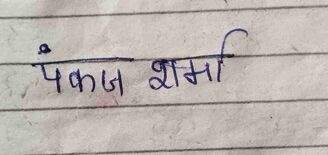 पंकज शर्मा